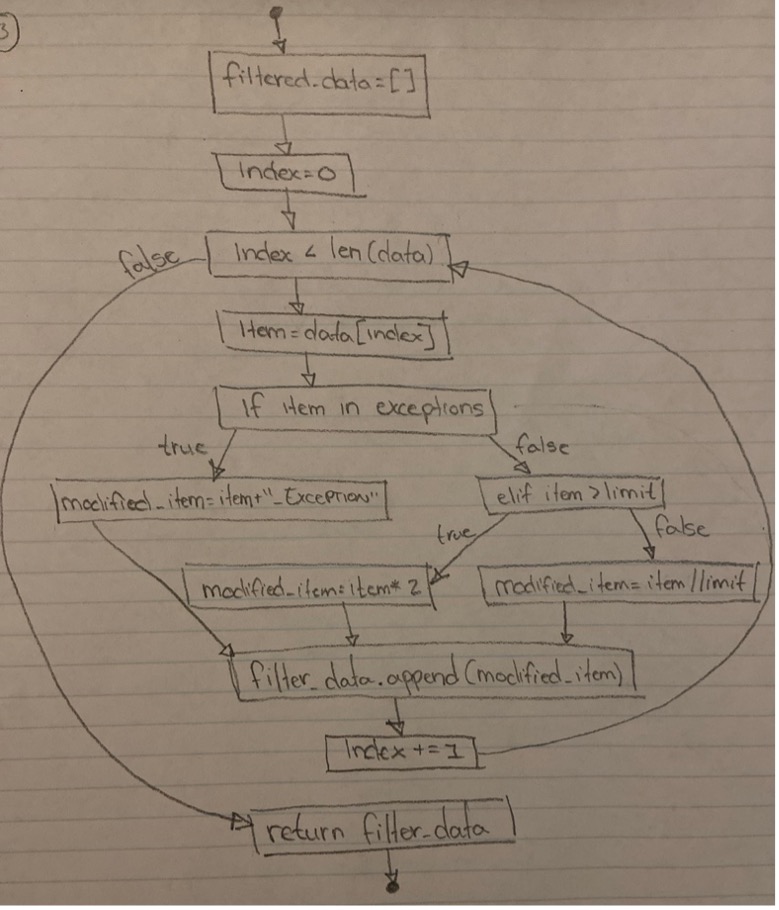 3
filtered_data=[]
Index=0
false
Index < len(data)
Item=data[index]
If item in exceptions
true
false
modified_item=item+"_Exception"
elif item >limit
true
false
modified_item=item* 2
modified_item=item//limit
filter_data.append(modified_item)
Index +=1
return filter_data